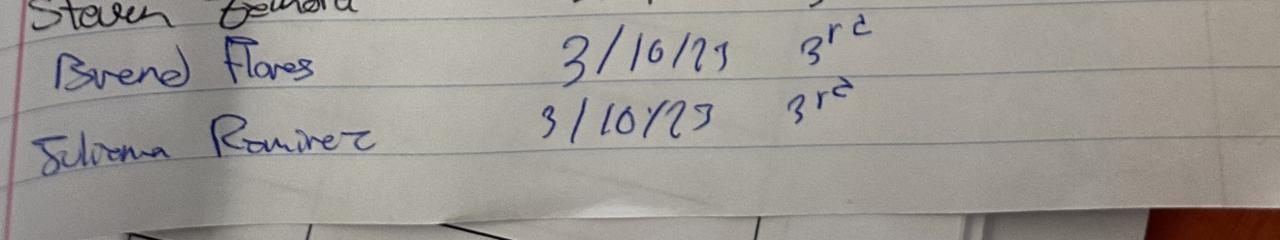 Steven
Brend Flores 3/10/23 3rd
Ramirez 3/10/23 3rd